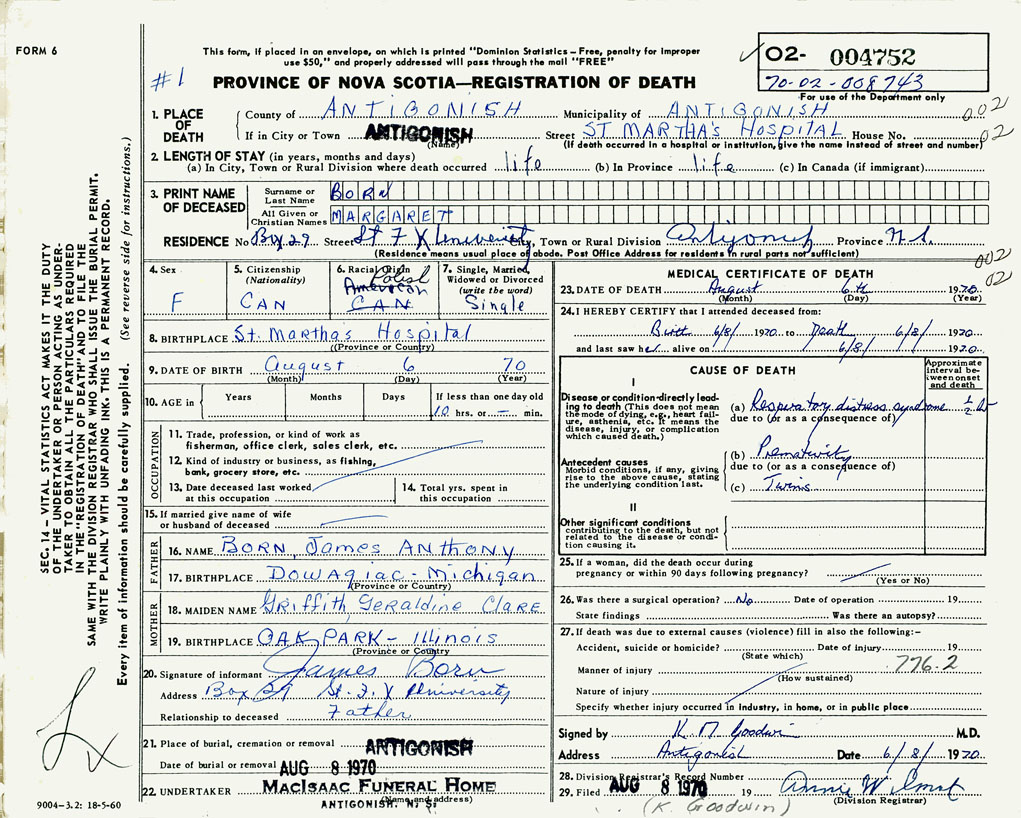 FORM 6
This form, if placed in an envelope, on which is printed "Dominion Statistics – Free, penalty for improper
use $50," and properly addressed will pass through the mail "FREE"
✓ 02- 004752
70-02-008743
For use of the Department only
#1
PROVINCE OF NOVA SCOTIA—REGISTRATION OF DEATH
1. PLACE OF DEATH
County of ANTIGONISH Municipality of ANTIGONISH 002
If in City or Town ANTIGONISH (Name) Street ST MARTHA'S HOSPITAL House No. 02
(If death occurred in a hospital or institution, give the name instead of street and number)
2. LENGTH OF STAY (in years, months and days)
(a) In City, Town or Rural Division where death occurred life (b) In Province life (c) In Canada (if immigrant)
3. PRINT NAME OF DECEASED
Surname or Last Name BORN
All Given or Christian Names MARGARET
RESIDENCE No Box 29 Street St F X University City, Town or Rural Division Antigonish Province N.S.
(Residence means usual place of abode. Post Office Address for residents in rural parts not sufficient)
002
02
4. Sex F
5. Citizenship (Nationality) CAN
6. Racial Origin Polish CAN
7. Single, Married, Widowed or Divorced (write the word) Single
8. BIRTHPLACE St. Martha's Hospital
(Province or Country)
9. DATE OF BIRTH August 6 70
(Month) (Day) (Year)
10. AGE in Years Months Days If less than one day old
10 hrs. or — min.
OCCUPATION
11. Trade, profession, or kind of work as
fisherman, office clerk, sales clerk, etc.
12. Kind of industry or business, as fishing,
bank, grocery store, etc.
13. Date deceased last worked
at this occupation
14. Total yrs. spent in
this occupation
15. If married give name of wife
or husband of deceased
FATHER
16. NAME BORN, James ANTHONY
17. BIRTHPLACE DOWAGIAC - Michigan
(Province or Country)
MOTHER
18. MAIDEN NAME Griffith, Geraldine CLARE
19. BIRTHPLACE OAK PARK - Illinois
(Province or Country)
20. Signature of informant James Born
Address Box 29 St. F. X University
Relationship to deceased Father
21. Place of burial, cremation or removal ANTIGONISH
Date of burial or removal AUG 8 1970
22. UNDERTAKER MacIsaac Funeral Home
(Name and address)
ANTIGONISH, N. S.
MEDICAL CERTIFICATE OF DEATH
23. DATE OF DEATH August 6th 1970
(Month) (Day) (Year)
24. I HEREBY CERTIFY that I attended deceased from:
Birth 6/8/ 1970 to Death 6/8/ 1970
and last saw her alive on 6/8/ 1970
CAUSE OF DEATH
Approximate interval between onset and death
I
Disease or condition directly leading to death (This does not mean the mode of dying, e.g., heart failure, asthenia, etc. It means the disease, injury, or complication which caused death.)
(a) Respiratory distress syndrome
due to (or as a consequence of)
Antecedent causes
Morbid conditions, if any, giving rise to the above cause, stating the underlying condition last.
(b) Prematurity
due to (or as a consequence of)
(c) Twins
II
Other significant conditions
contributing to the death, but not related to the disease or condition causing it.
25. If a woman, did the death occur during
pregnancy or within 90 days following pregnancy?
(Yes or No)
26. Was there a surgical operation? No Date of operation 19
State findings Was there an autopsy?
27. If death was due to external causes (violence) fill in also the following:–
Accident, suicide or homicide? Date of injury 19
(State which)
776.2
Manner of injury
(How sustained)
Nature of injury
Specify whether injury occurred in industry, in home, or in public place
Signed by K. M Goodwin M.D.
Address Antigonish Date 6/8/ 1970.
28. Division Registrar's Record Number
29. Filed AUG 8 1970 19
(Division Registrar)
(K. Goodwin)
SEC. 14 – VITAL STATISTICS ACT MAKES IT THE DUTY
OF THE UNDERTAKER OR PERSON ACTING AS UNDER-
TAKER TO OBTAIN ALL THE PARTICULARS REQUIRED
IN THE "REGISTRATION OF DEATH" AND TO FILE THE
SAME WITH THE DIVISION REGISTRAR WHO SHALL ISSUE THE BURIAL PERMIT.
WRITE PLAINLY WITH UNFADING INK. THIS IS A PERMANENT RECORD.
Every item of information should be carefully supplied. (See reverse side for instructions.)
9004–3.2: 18-5-60